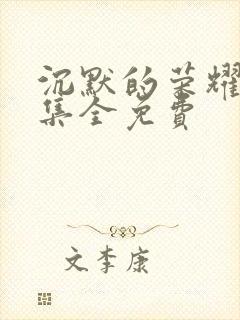 沉默的荣耀
集全免费
文李康